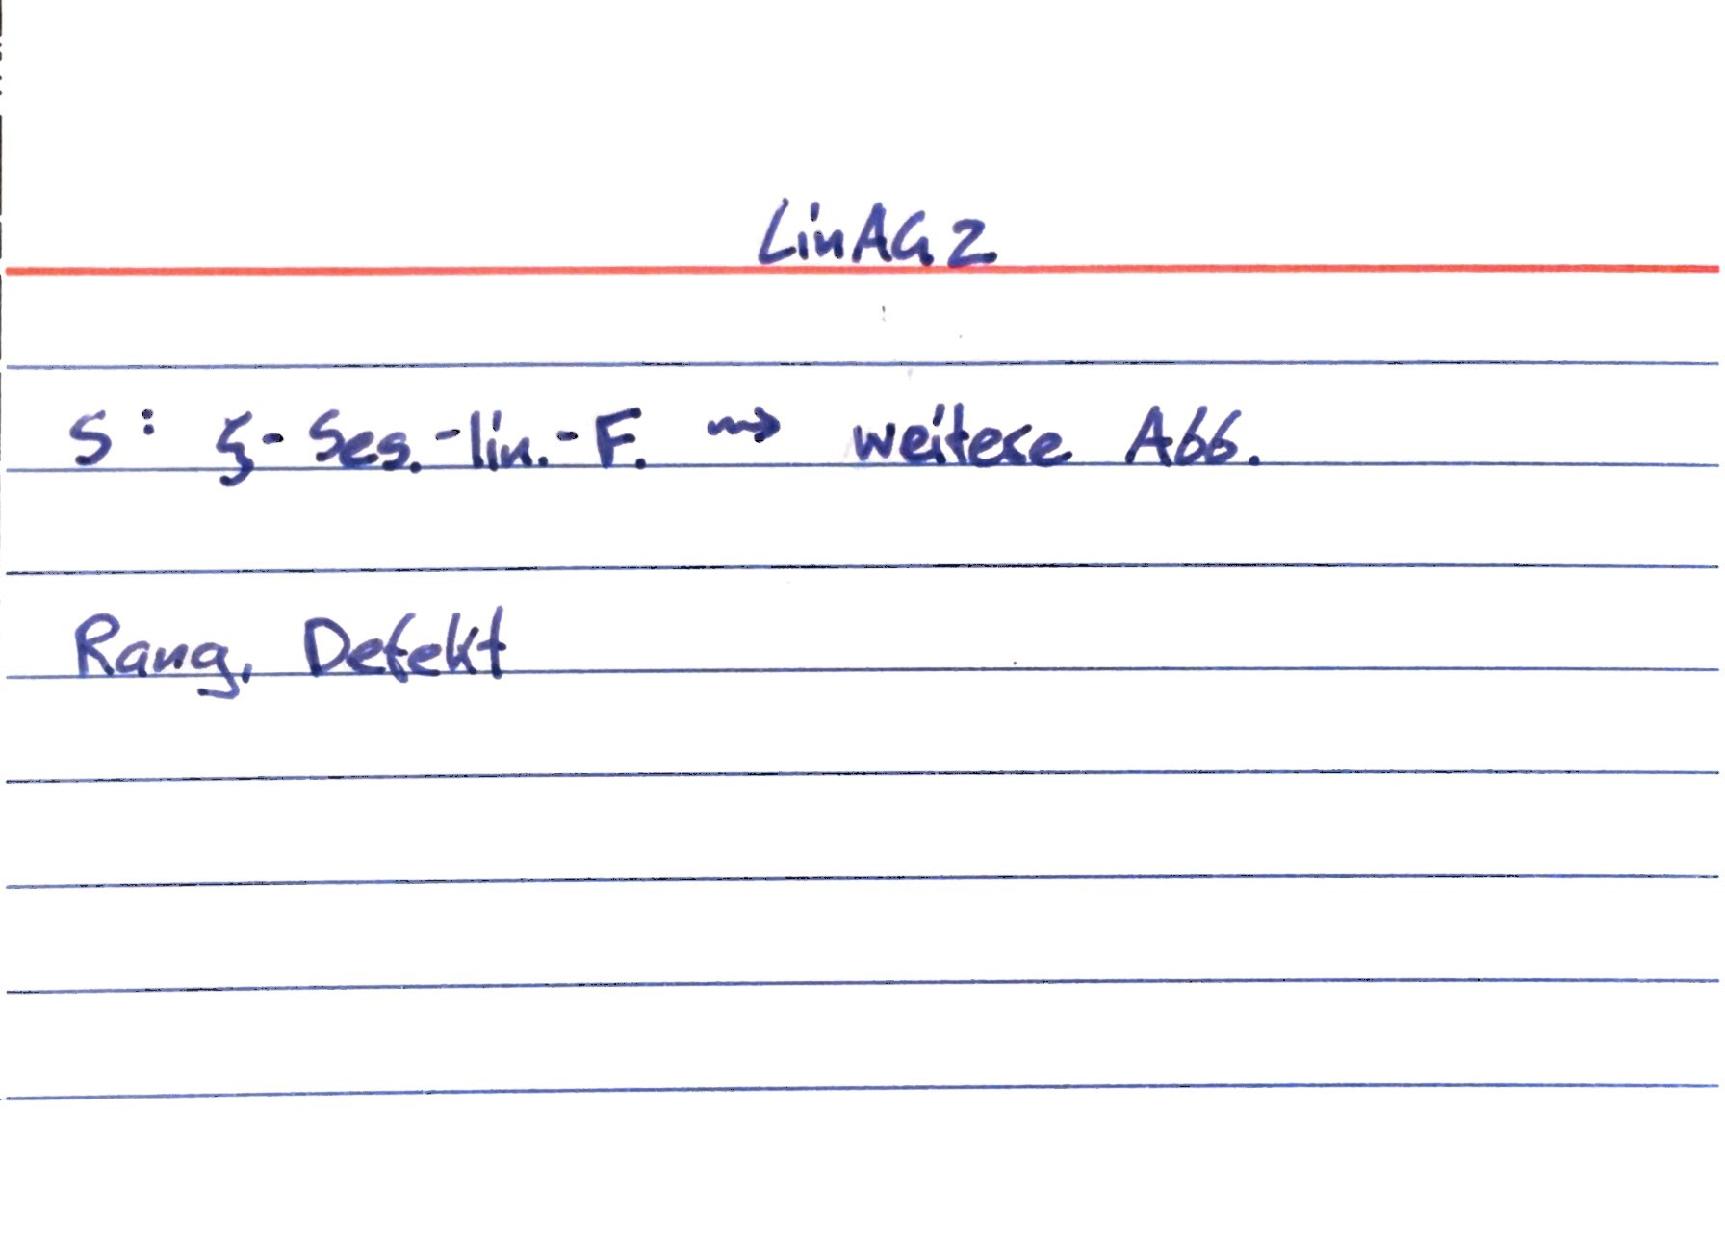 LinAG 2
S: ξ-Ses.-lin.-F. ⇝ weitere Abb.
Rang, Defekt